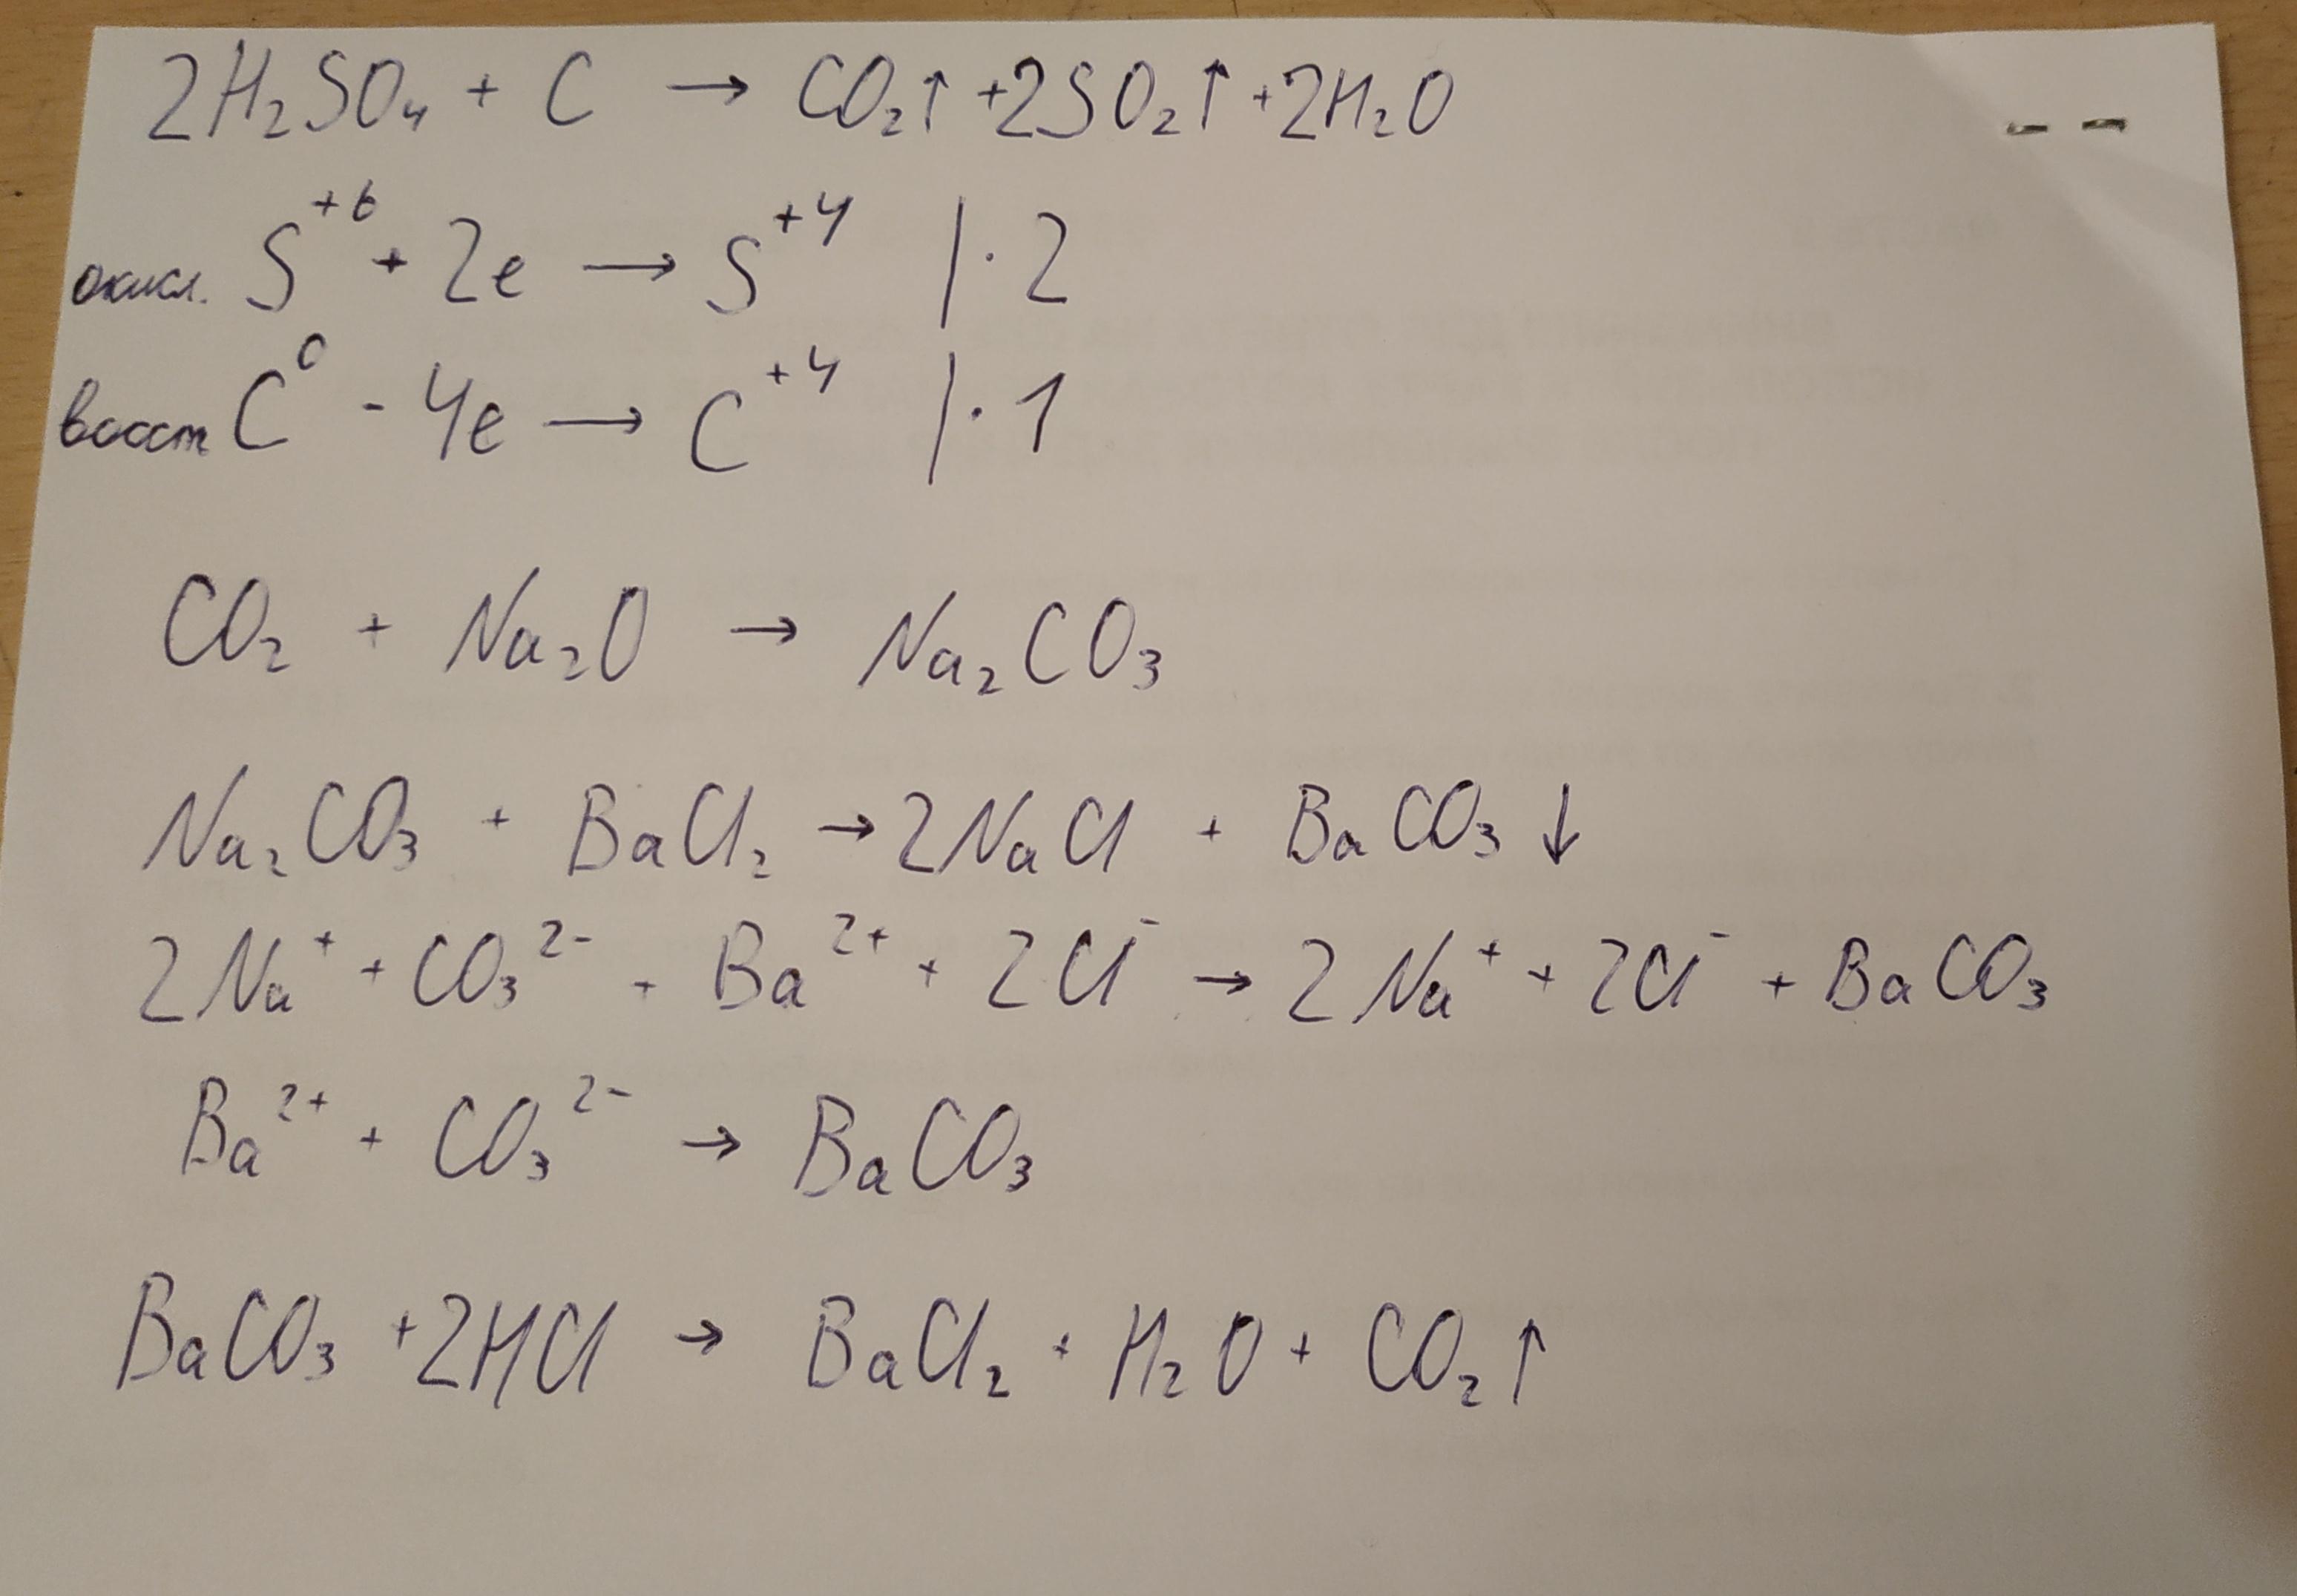 2H₂SO₄ + C → CO₂↑ + 2SO₂↑ + 2H₂O
окисл. S⁺⁶ + 2e → S⁺⁴ | · 2
восст C⁰ - 4e → C⁺⁴ | · 1
CO₂ + Na₂O → Na₂CO₃
Na₂CO₃ + BaCl₂ → 2NaCl + BaCO₃ ↓
2Na⁺ + CO₃²⁻ + Ba²⁺ + 2Cl⁻ → 2Na⁺ + 2Cl⁻ + BaCO₃
Ba²⁺ + CO₃²⁻ → BaCO₃
BaCO₃ + 2HCl → BaCl₂ + H₂O + CO₂↑